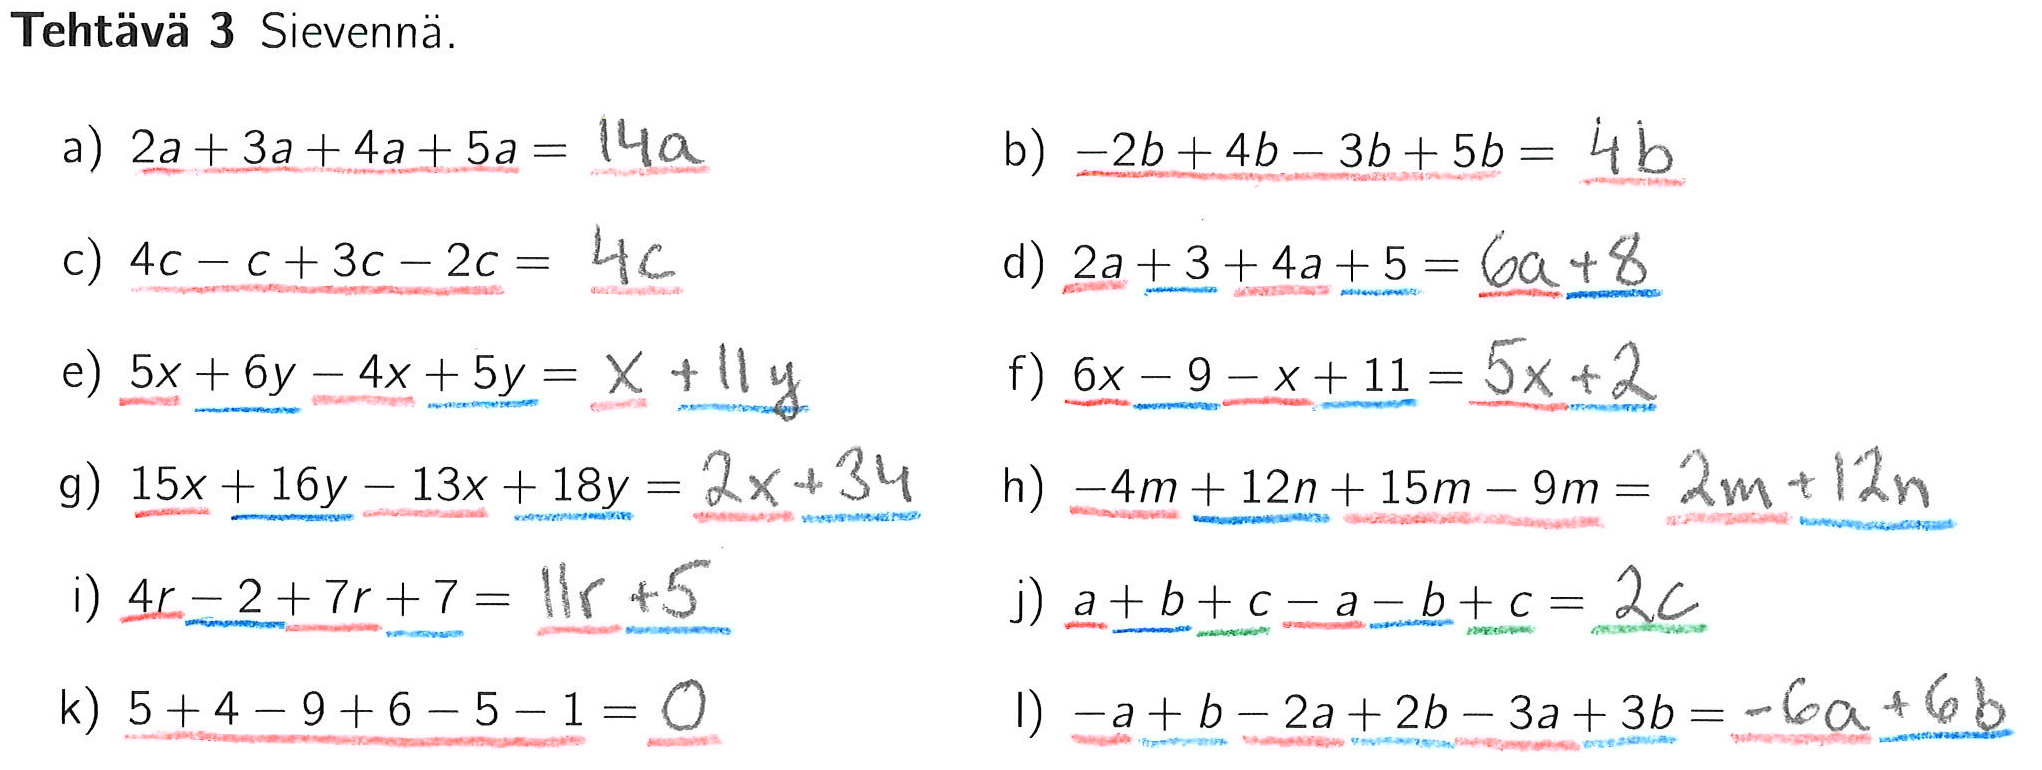 Tehtävä 3 Sievennä.
a) 2a + 3a + 4a + 5a = 14a
b) −2b + 4b − 3b + 5b = 4b
c) 4c − c + 3c − 2c = 4c
d) 2a + 3 + 4a + 5 = 6a + 8
e) 5x + 6y − 4x + 5y = x + 11y
f) 6x − 9 − x + 11 = 5x + 2
g) 15x + 16y − 13x + 18y = 2x + 34
h) −4m + 12n + 15m − 9m = 2m + 12n
i) 4r − 2 + 7r + 7 = 11r + 5
j) a + b + c − a − b + c = 2c
k) 5 + 4 − 9 + 6 − 5 − 1 = 0
l) −a + b − 2a + 2b − 3a + 3b = −6a + 6b